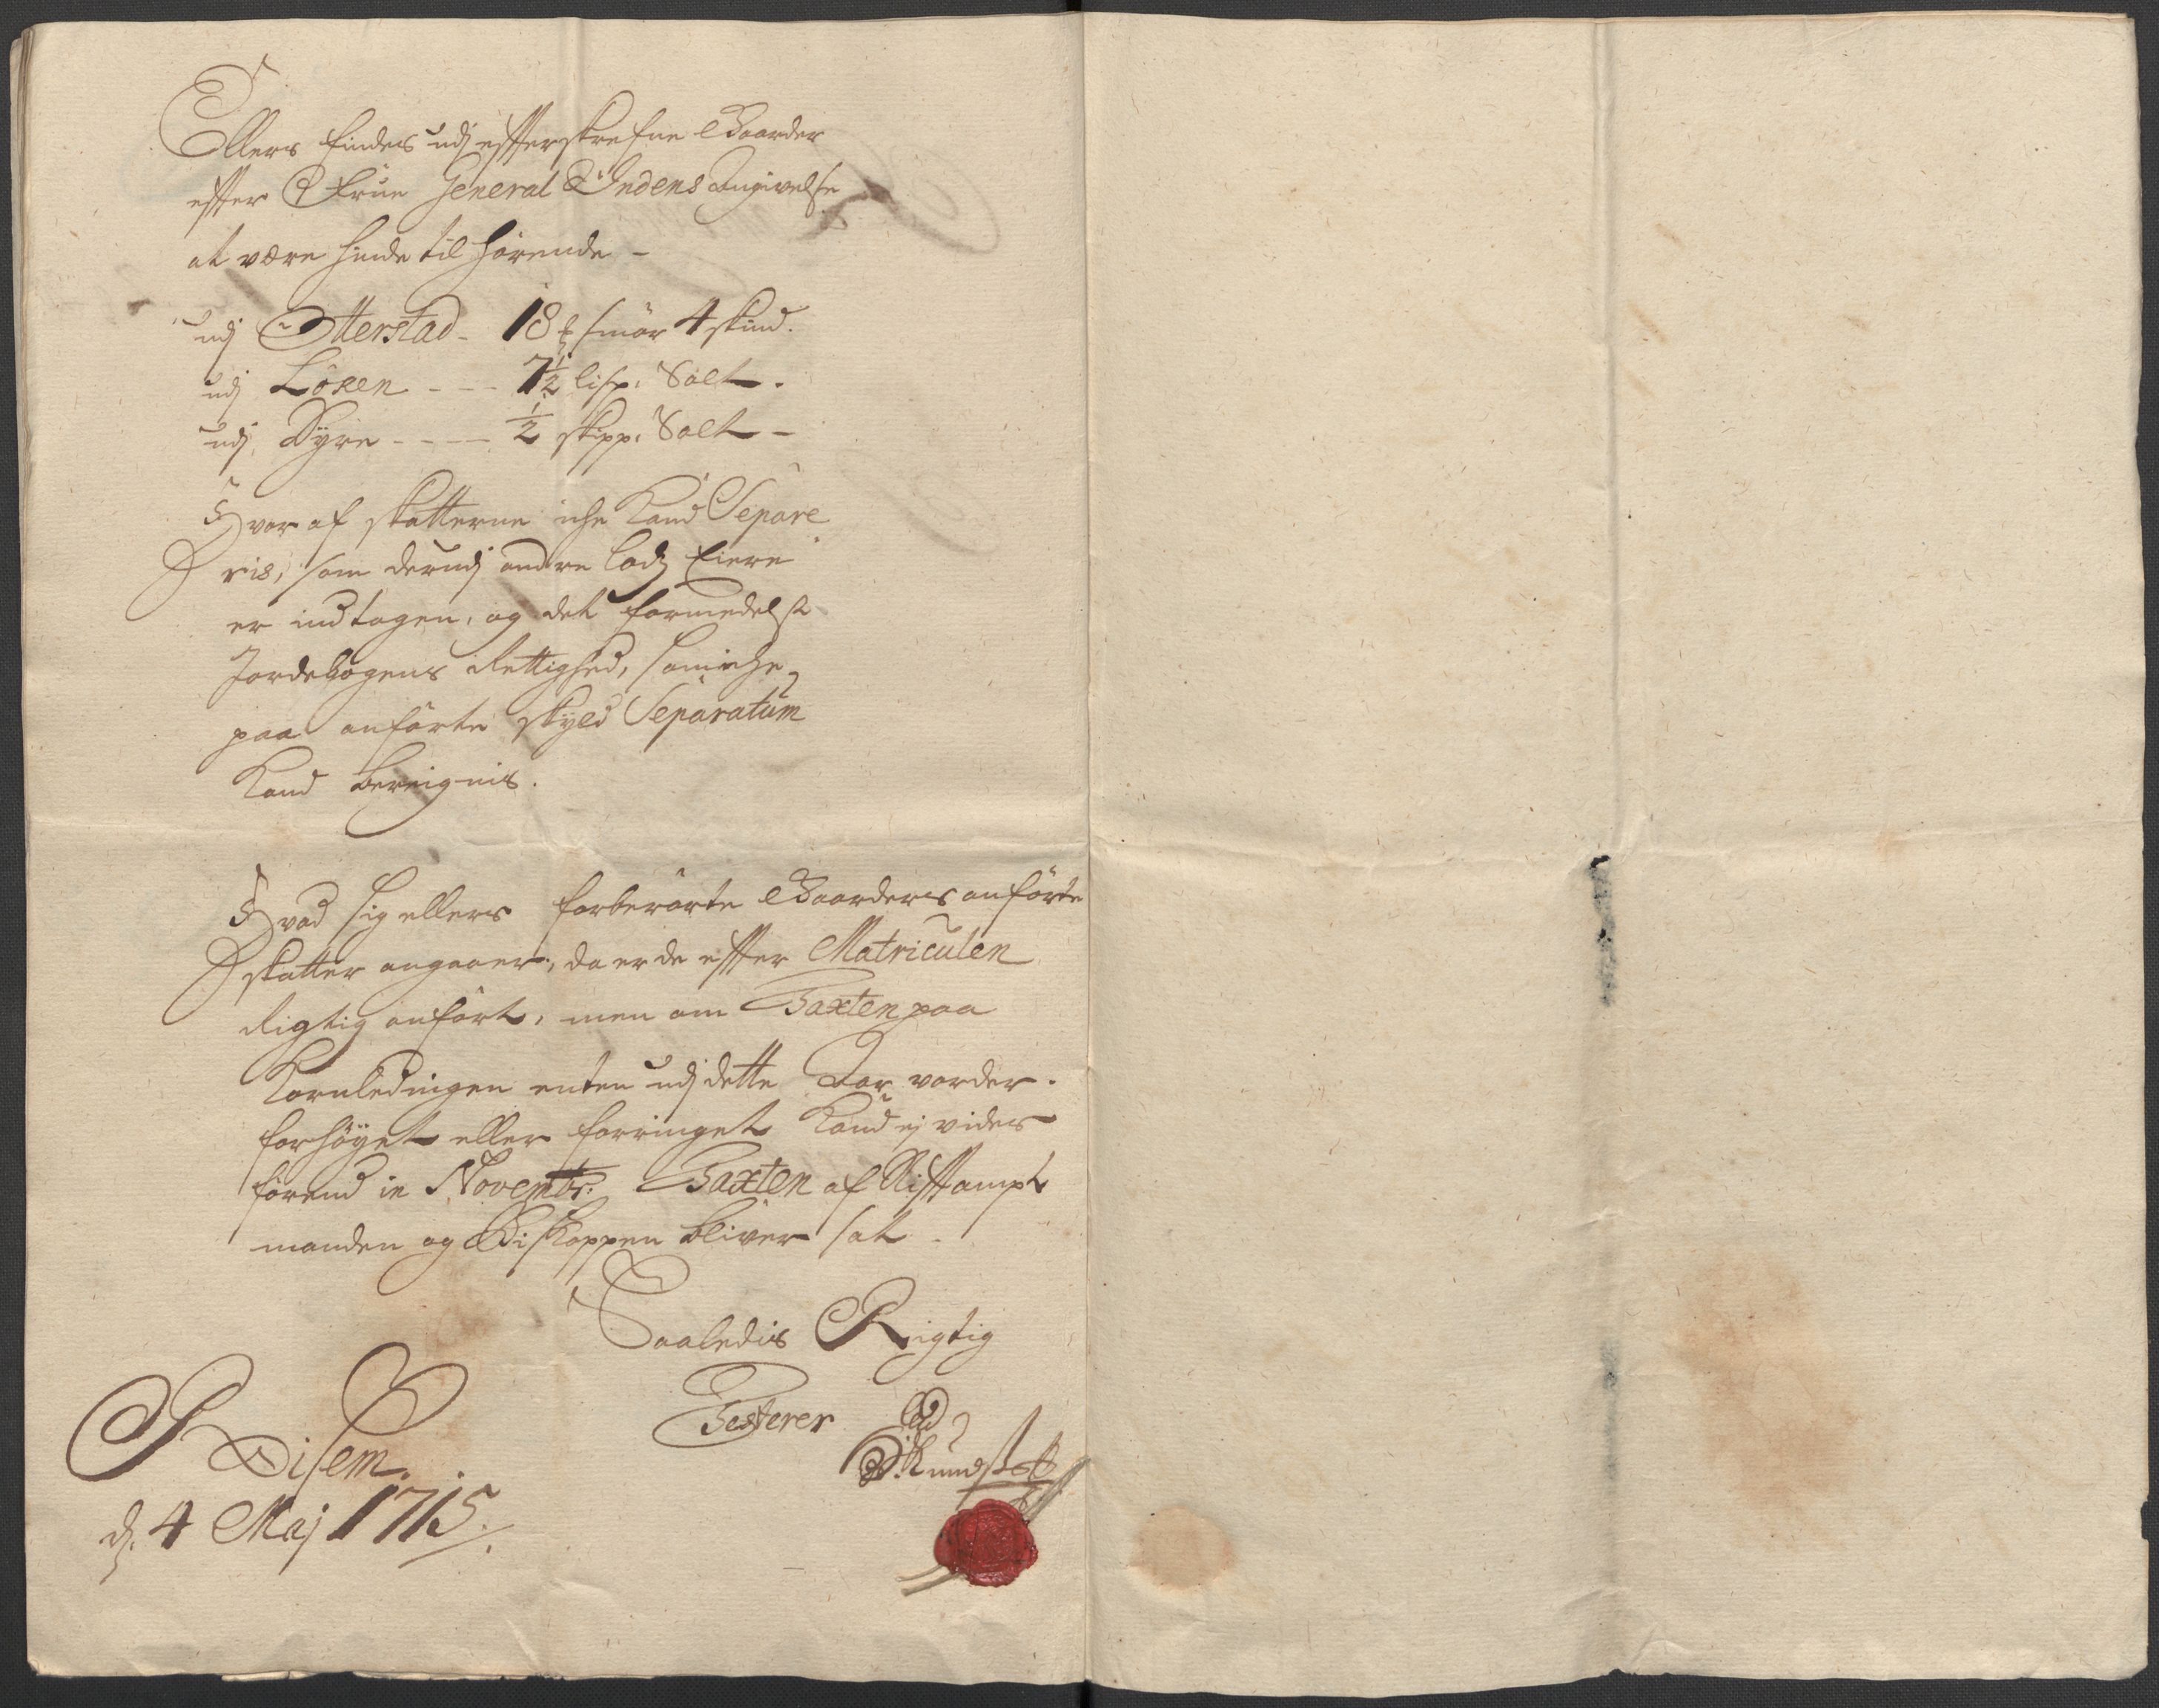 Ellers findes udj effterskrefne Gaarder
effter Frue General Andens Angivelse
at være hinde til hörende -
udj Otterstad - 18 ℔ smör 4 skind.
udj Löken - - - 7½ lisp. Salt.
udj Dyre - - - - ½ skipp. Salt -
Hvor af skatterne iche Kand Separe
ris, som derudj andre lodz Eiere
er indtagen, og det formedelst
Jordebogens Rettighed, som iche
paa anförte skyld Separatum
Kand bereignis.
Hvad sig ellers forberörte Gaarders anförte
skatter angaaer, da er de effter Matriculen
Rigtig anfört, men om Taxten paa
Kornledingen enten udj dette Aar vorder
forhöyet eller forringet Kand ej vides
förend in Novembr: Taxten af Stifftampt
manden og Biskoppen bliver sat -
Saaledis Rigtig
Testerer
Disem.
d. 4 Maj 1715.